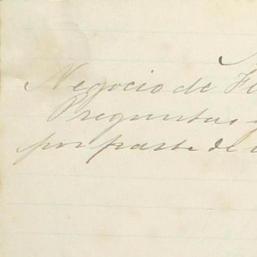 Negocio de Fl
Preguntas
por parte de